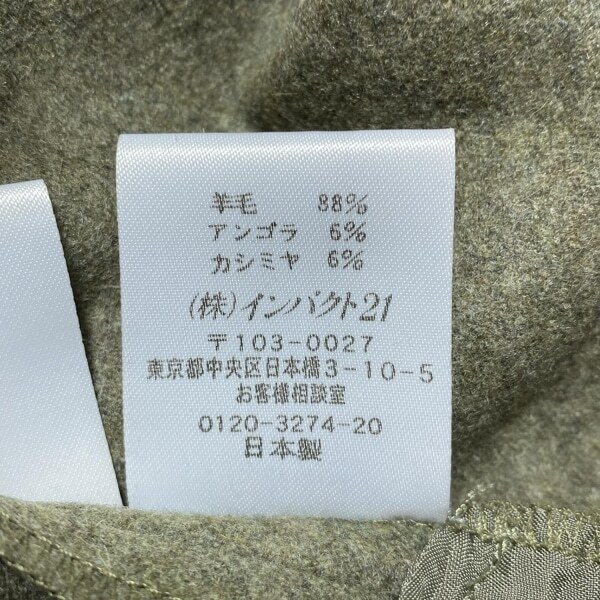 羊毛 88%
アンゴラ 6%
カシミヤ 6%
(株)インパクト21
〒103-0027
東京都中央区日本橋3-10-5
お客様相談室
0120-3274-20
日本製